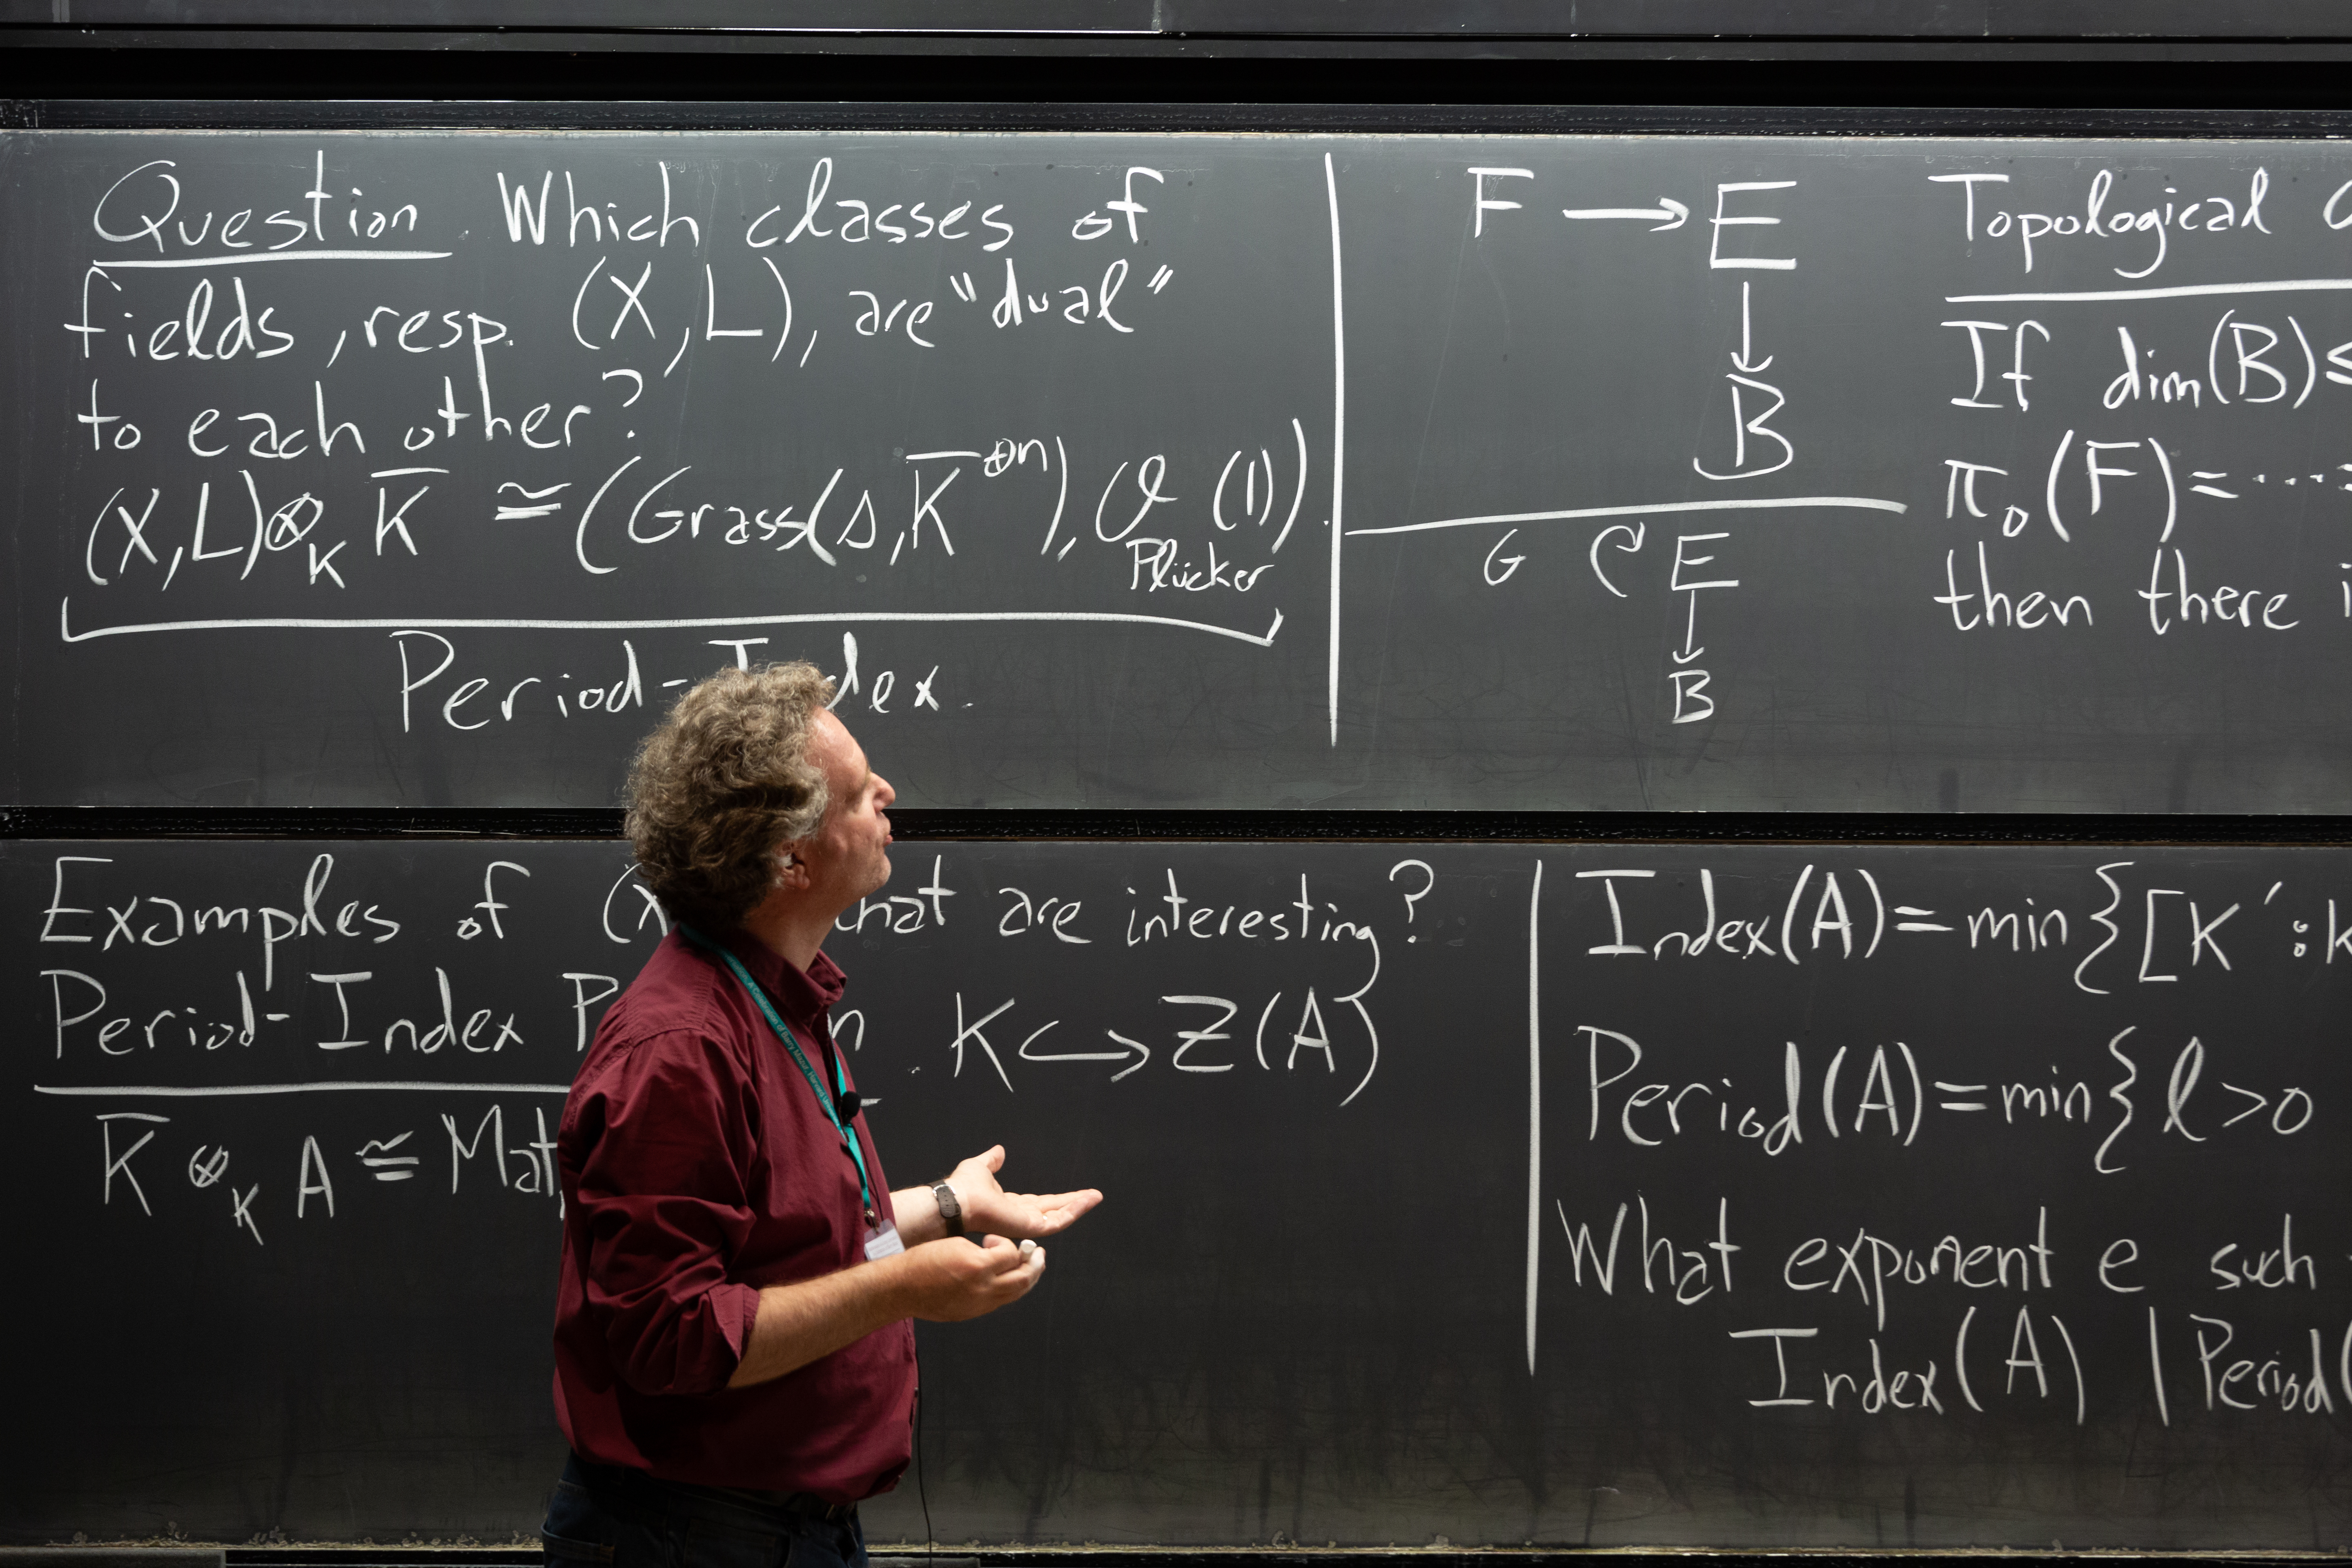 Question. Which classes of
fields, resp. (X,L), are "dual"
to each other?
(X,L)⊗_K K̅ ≅ (Grass(s,K̅^⊕n), O(1)).
Plücker
Period-Index.
F → E
↓
B
G ↷ E
↓
B
Topological
If dim(B) ≤
π₀(F) = ⋯ =
then there
Examples of (X that are interesting?
Period-Index K ↪ Z(A)
K̅ ⊗_K A ≅ Mat
Index(A) = min { [K' : K
Period(A) = min { l > 0
What exponent e such
Index(A) | Period(
A Celebration of Barry Mazur, Harvard